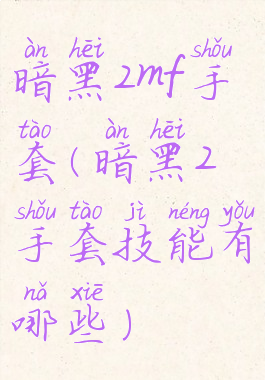 àn hēi shǒu
暗黑2mf手
tào àn hēi
套(暗黑2
shǒu tào jì néng yǒu
手套技能有
nǎ xiē
哪些)